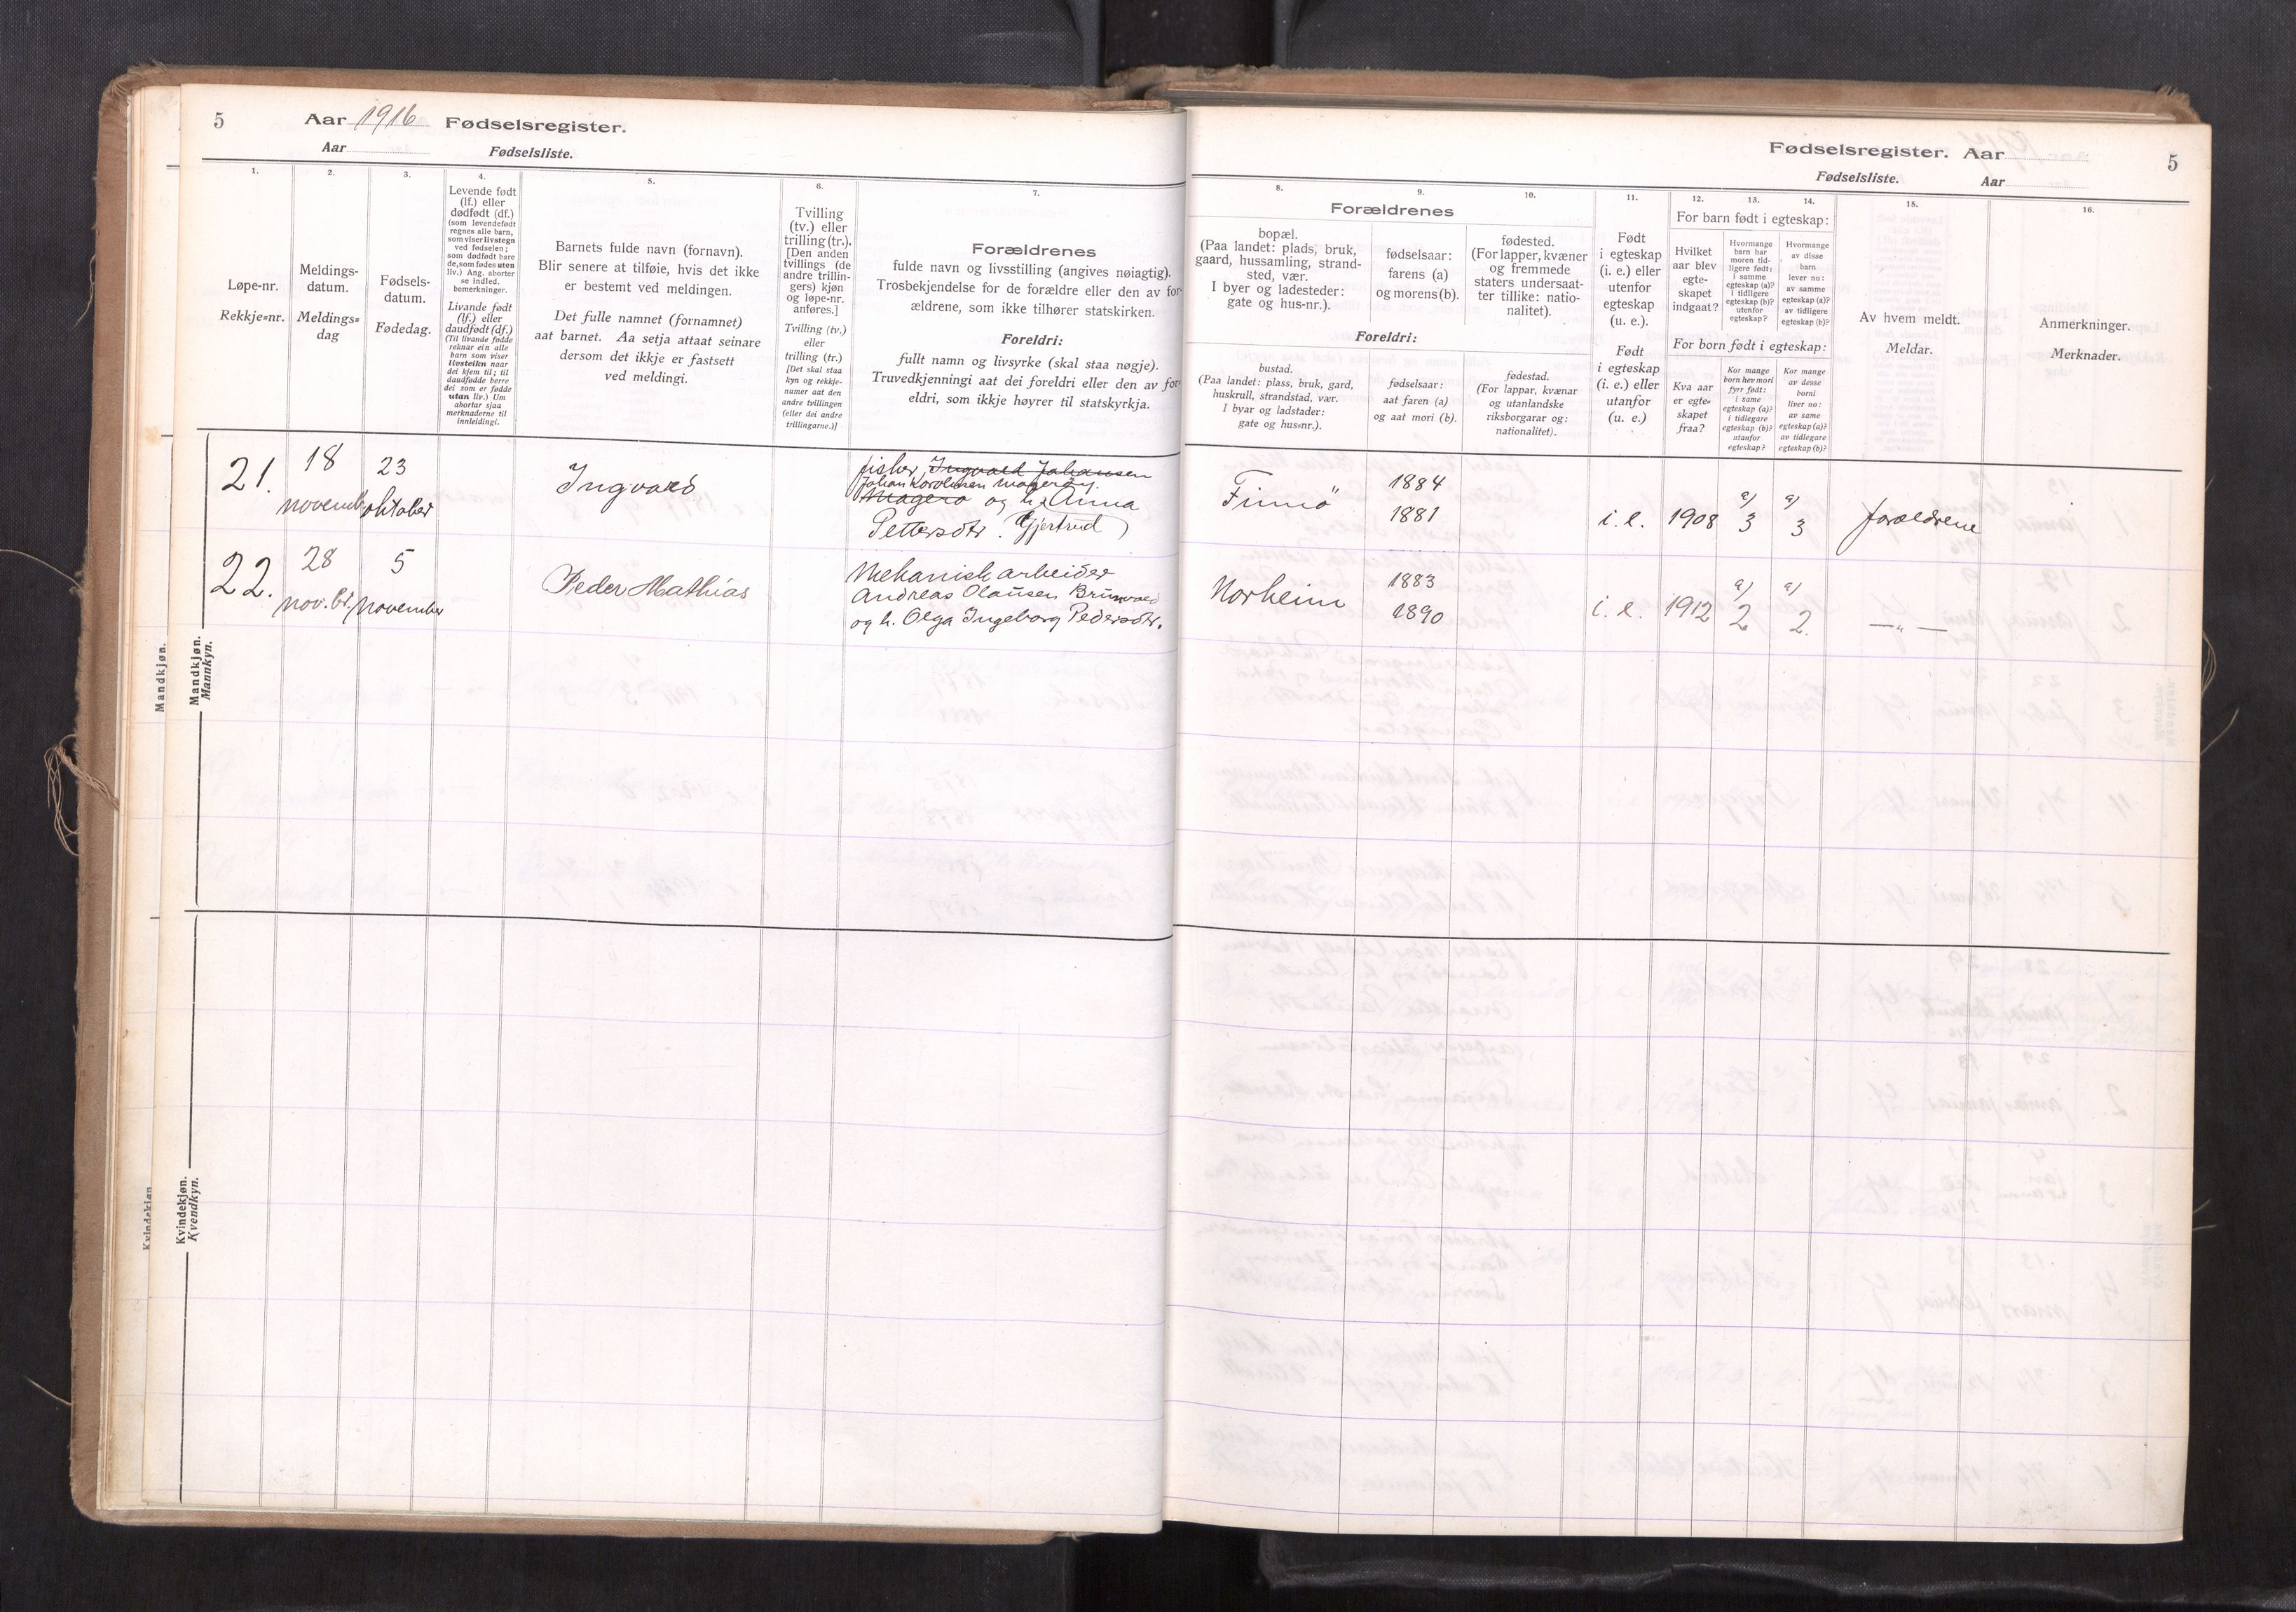 5
Aar 1916 Fødselsregister.
Aar Fødselsliste.
Fødselsregister. Aar
Fødselsliste. Aar
5
1.
Løpe-nr.
Rekkje=nr.
2.
Meldings-
datum.
Meldings=
dag
3.
Fødsels-
datum.
Fødedag.
4.
Levende født
(lf.) eller
dødfødt (df.)
(som levendefødt
regnes alle barn,
som viser livstegn
ved fødselen;
som dødfødt bare
de, som fødes uten
liv.) Ang. aborter
se indled.
bemerkninger.
Livande født
(lf.) eller
daudfødt (df.)
(Til livande fødde
reknar ein alle
barn som viser
livsteikn naar
dei kjem til; til
daudfødde berre
dei som er fødde
utan liv.) Um
abortar sjaa
merknaderne til
innleidingi.
5.
Barnets fulde navn (fornavn).
Blir senere at tilføie, hvis det ikke
er bestemt ved meldingen.
Det fulle namnet (fornamnet)
aat barnet. Aa setja attaat seinare
dersom det ikkje er fastsett
ved meldingi.
6.
Tvilling
(tv.) eller
trilling (tr.).
[Den anden
tvillings (de
andre trillin-
gers) kjøn
og løpe-nr.
anføres.]
Tvilling (tv.)
eller
trilling (tr.)
[Det skal staa
kyn og rekkje-
numer aat den
andre tvillingen
(eller dei andre
trillingarne.)]
7.
Forældrenes
fulde navn og livsstilling (angives nøiagtig).
Trosbekjendelse for de forældre eller den av for-
ældrene, som ikke tilhører statskirken.
Foreldri:
fullt namn og livsyrke (skal staa nøgje).
Truvedkjenningi aat dei foreldri eller den av for-
eldri, som ikkje høyrer til statskyrkja.
Forældrenes
8.
bopæl.
(Paa landet: plads, bruk,
gaard, hussamling, strand-
sted, vær.
I byer og ladesteder:
gate og hus-nr.).
9.
fødselsaar:
farens (a)
og morens (b).
10.
fødested.
(For lapper, kvæner
og fremmede
staters undersaat-
ter tillike: natio-
nalitet).
Foreldri:
bustad.
(Paa landet: plass, bruk, gard,
huskrull, strandstad, vær.
I byar og ladstader:
gate og hus=nr.).
fødselsaar:
aat faren (a)
og aat mori (b).
fødestad.
(For lappar, kvænar
og utanlandske
riksborgarar og:
nationalitet).
11.
Født
i egteskap
(i. e.) eller
utenfor
egteskap
(u. e.).
Født
i egteskap
(i. e.) eller
utanfor
(u. e.)
12. 13. 14.
For barn født i egteskap:
Hvilket
aar blev
egte-
skapet
indgaat?
Hvormange
barn har
moren tid-
ligere født:
i samme
egteskap (a)?
i tidligere
egteskap (b)?
utenfor
egteskap?
Hvormange
av disse
barn
lever nu:
av samme
egteskap (a)?
av tidligere
egteskap (b)?
For born født i egteskap:
Kva aar
er egte=
skapet
fraa?
Kor mange
born hev mori
fyrr født:
i same
egteskap (a)?
i tidlegare
egteskap (b)?
utanfor
egteskap?
Kor mange
av desse
borni
liver no:
av same
egteskap (a)?
av tidlegare
egteskap (b)?
15.
Av hvem meldt.
Meldar.
16.
Anmerkninger.
Merknader.
Mandkjøn.
Mandkjøn.
Mannkyn.
21. 18 novemb. 23 oktober Ingvald
fisker, Ingvald Johansen
Magerø og h. Anna
Pettersdtr. (Gjertrud)
Finnø 1884 1881 i. e. 1908 a) 3 a) 3 forældrene
22. 28 nov.br. 5 november Peder Mathias
Mekanisk arbeider
Andreas Olausen Brunvold
og h. Olga Ingeborg Pedersdtr.
Norheim 1883 1890 i. e. 1912 a) 2 a) 2. —„—
Kvindekjøn
Kvindekjøn.
Kvendkyn.